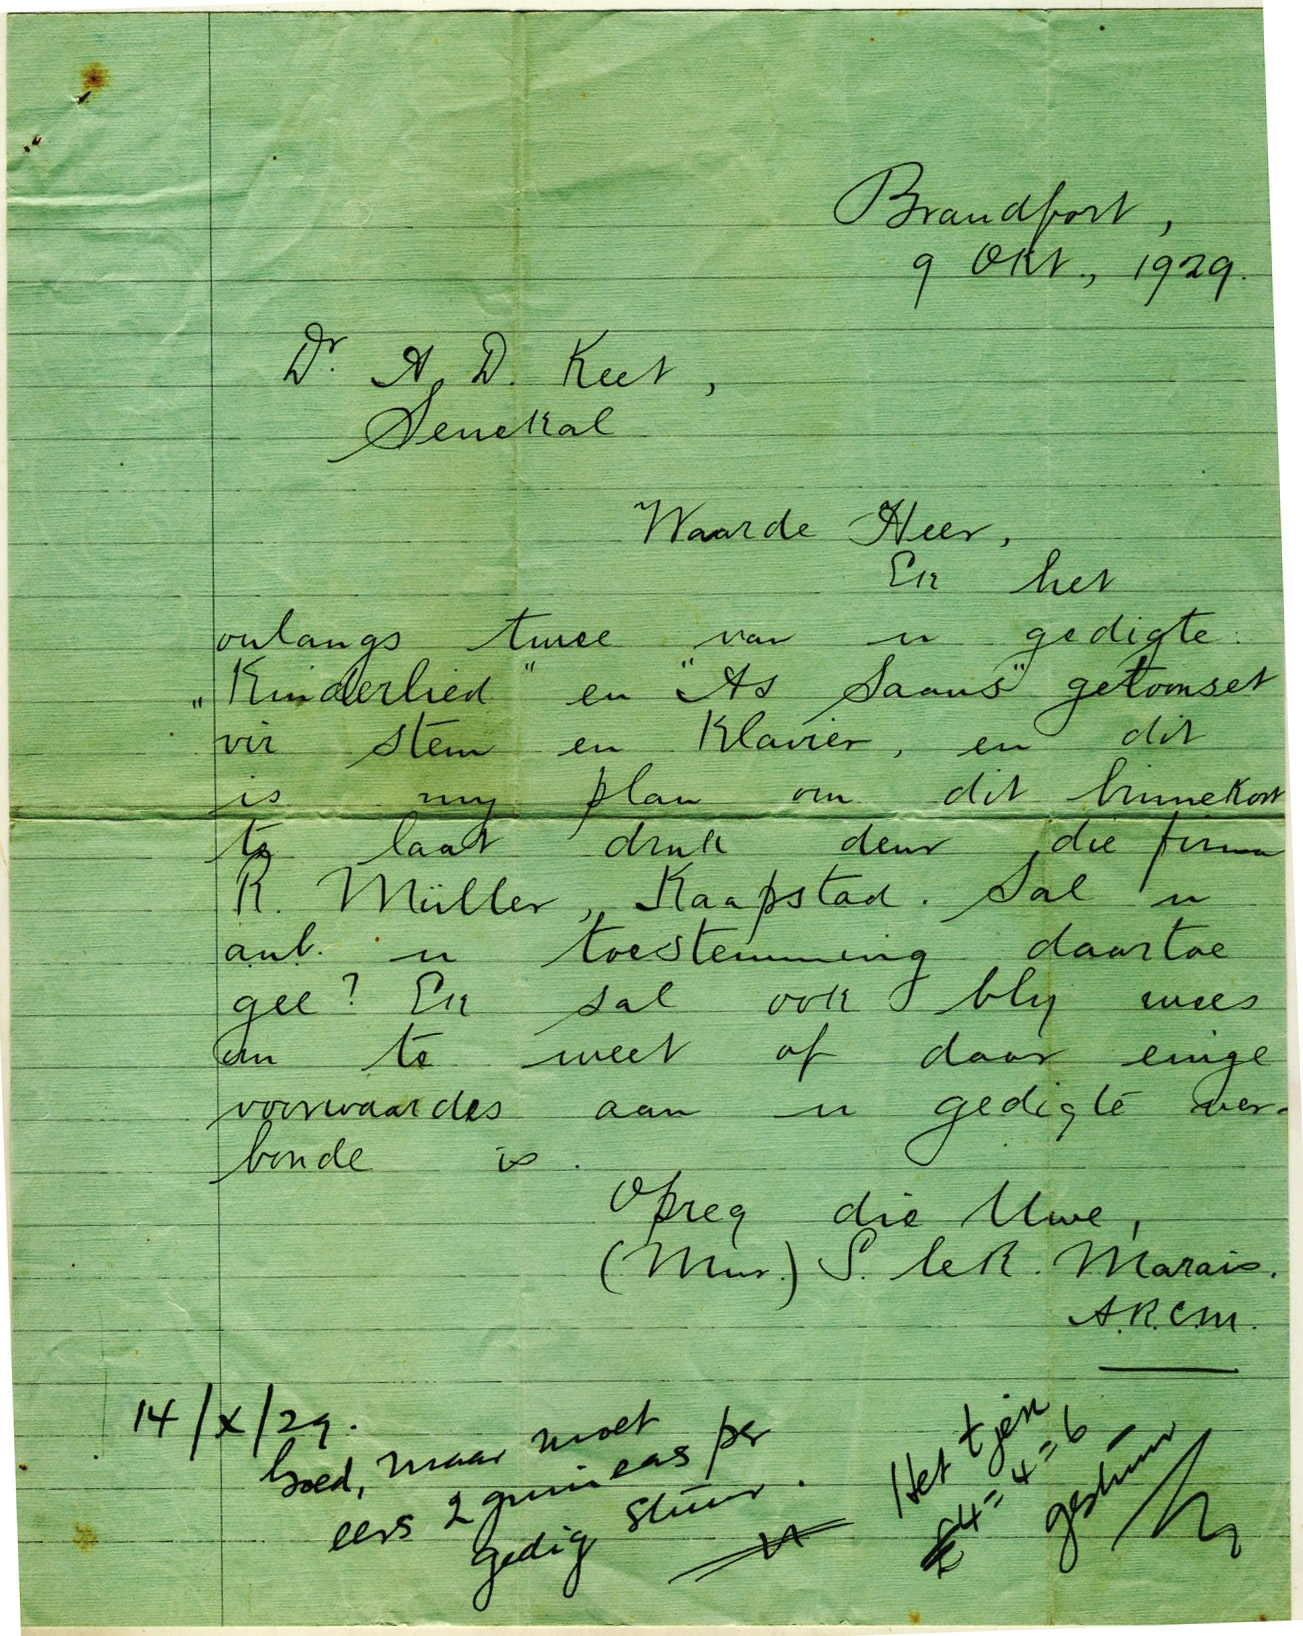 Brandfort,
9 Okt., 1929.
Dr. A. D. Keet,
Senekal
Waarde Heer,
Ek het
onlangs twee van u gedigte
„Kinderlied" en "As Saans" getoonset
vir stem en Klavier, en dit
is my plan om dit binnekort
te laat druk deur die firma
R. Müller, Kaapstad. Sal u
aub. u toestemming daartoe
gee? Ek sal ook bly wees
om te weet of daar enige
voorwaardes aan u gedigte ver-
bonde is.
Opreg die Uwe,
(Mur.) S. le R. Marais.
A.R.C.M.
14/X/29.
Goed, maar moet
eers 2 guineas per
gedig stuur.
Het tjek
£4=4=6
gestuur